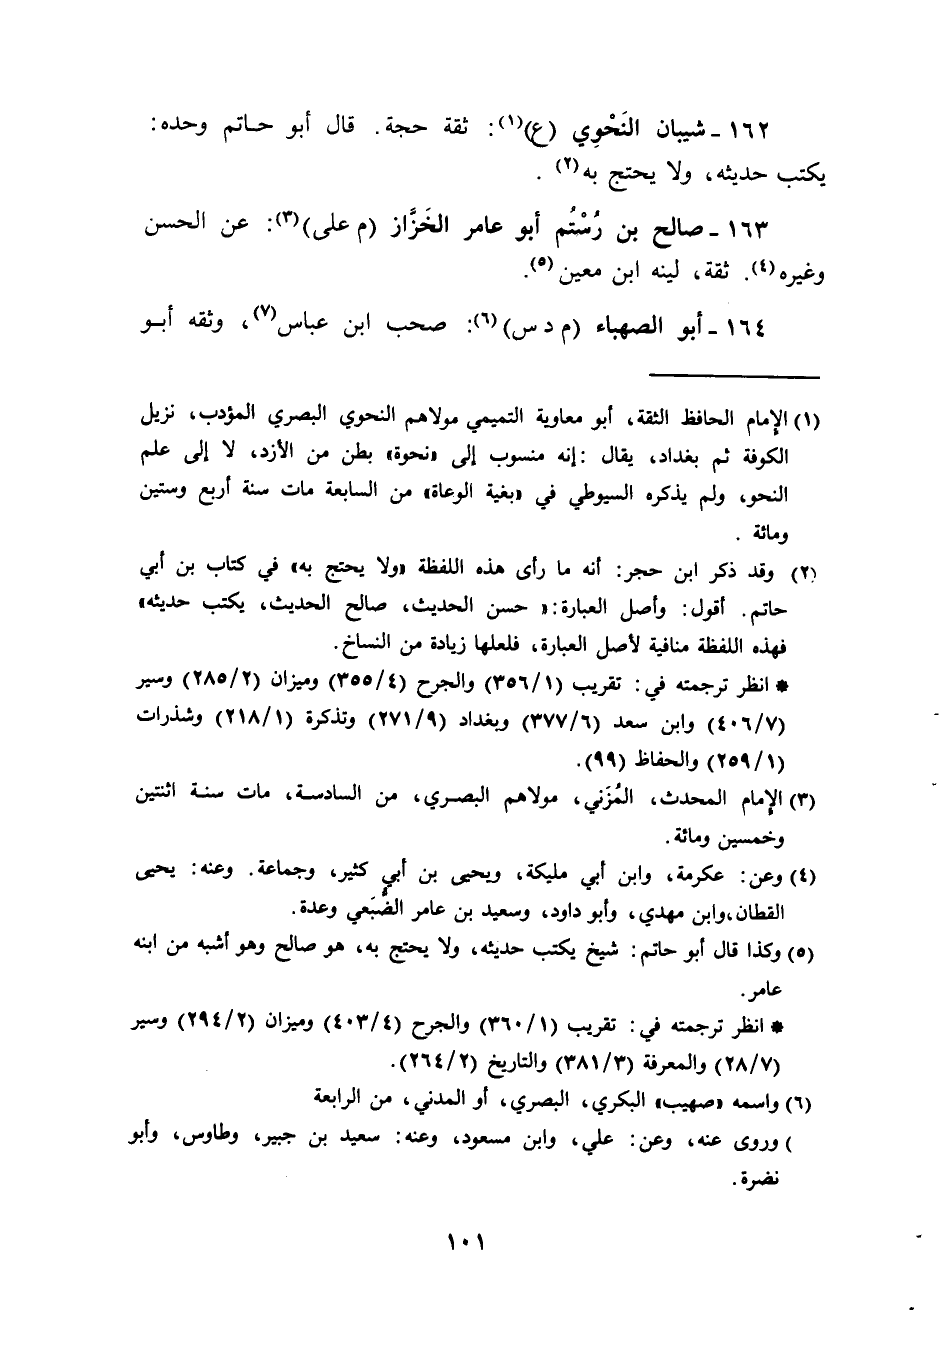 ١٦٢ ـ شيبان النَحْوِي (ع)(١): ثقة حجة. قال أبو حـاتم وحده:
يكتب حديثه، ولا يحتج به(٢).
١٦٣ ـ صالح بن رُسْتُم أبو عامر الخَزَّاز (م على)(٣): عن الحسن
وغيره(٤). ثقة، لينه ابن معين(٥).
١٦٤ ـ أبو الصهباء (م د س)(٦): صحب ابن عباس(٧)، وثقه أبـو
(١) الإمام الحافظ الثقة، أبو معاوية التميمي مولاهم النحوي البصري المؤدب، نزيل
الكوفة ثم بغداد، يقال :إنه منسوب إلى «نحوة» بطن من الأزد، لا إلى علم
النحو، ولم يذكره السيوطي في «بغية الوعاة» من السابعة مات سنة أربع وستين
ومائة .
(٢) وقد ذكر ابن حجر: أنه ما رأى هذه اللفظة «ولا يحتج به» في كتاب بن أبي
حاتم. أقول: وأصل العبارة:« حسن الحديث، صالح الحديث، يكتب حديثه»
فهذه اللفظة منافية لأصل العبارة، فلعلها زيادة من النساخ.
* انظر ترجمته في: تقريب (٣٥٦/١) والجرح (٣٥٥/٤) وميزان (٢٨٥/٢) وسير
(٤٠٦/٧) وابن سعد (٣٧٧/٦) وبغداد (٢٧١/٩) وتذكرة (٢١٨/١) وشذرات
(٢٥٩/١) والحفاظ (٩٩).
(٣) الإمام المحدث، المُزَني، مولاهم البصـري، من السادسـة، مات سنـة اثنتين
وخمسين ومائة.
(٤) وعن: عكرمة، وابن أبي مليكة، ويحيى بن أبي كثير، وجماعة. وعنه: يحيى
القطان،وابن مهدي، وأبو داود، وسعيد بن عامر الضُّبَعي وعدة.
(٥) وكذا قال أبو حاتم: شيخ يكتب حديثه، ولا يحتج به، هو صالح وهو أشبه من ابنه
عامر.
* انظر ترجمته في: تقريب (٣٦٠/١) والجرح (٤٠٣/٤) وميزان (٢٩٤/٢) وسير
(٢٨/٧) والمعرفة (٣٨١/٣) والتاريخ (٢٦٤/٢).
(٦) واسمه «صهيب» البكري، البصري، أو المدني، من الرابعة
) وروى عنه، وعن: علي، وابن مسعود، وعنه: سعيد بن جبير، وطاوس، وأبو
نضرة.
١٠١